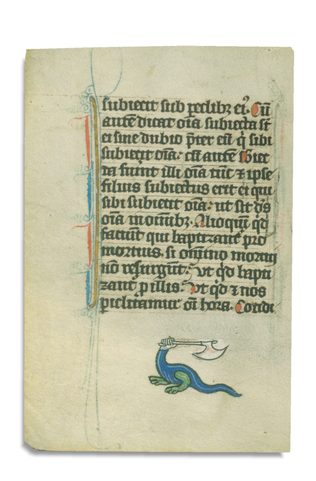 subiecit sub pedibꝫ ei᷒. Cū
autē dicat oīa subiecta st̄
ei sine dubio p̄ter eū q̇ sibi
subiecit oīa. cū autē subiec
ta fu̇int illi oīa tūc ⁊ ipse
filius subiectus erit ei qui
sibi subiecit oīa. ut sit ds̄
oīa in om̄ibꝫ. Alioquī qd̄
faciunt qui baptizant᷑ pro
mortuis. si omnino mortui
nō resurgūt. Ut qd̄ bapti
zant᷑ p illis. Ut qd̄ ⁊ nos
piclitamur om̄i hora. Cotidi